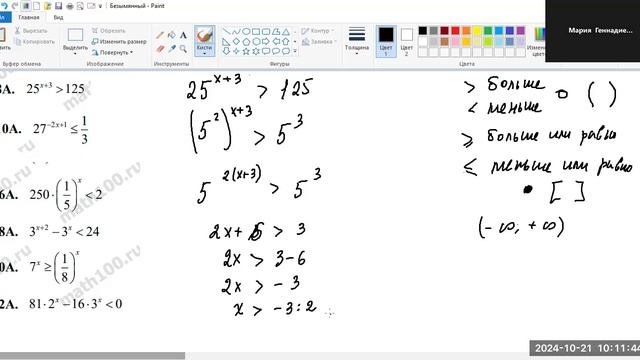 Безымянный - Paint
Главная
Вид
Вырезать
Копировать
Буфер обмена
Обрезать
Изменить размер
Повернуть
Изображение
Инструменты
Кисти
Контур
Заливка
Фигуры
Толщина
Цвет 1
Цвет 2
Цвета
Мария Геннадие...
8A. 25^{x+3} > 125
10A. 27^{-2x+1} ≤ 1/3
6A. 250·(1/5)^x < 2
8A. 3^{x+2} − 3^x < 24
0A. 7^x ≥ (1/8)^x
2A. 81·2^x − 16·3^x < 0
math100.ru
math100.ru
25^{x+3} > 125
(5^2)^{x+3} > 5^3
5^{2(x+3)} > 5^3
2x + 6 > 3
2x > 3-6
2x > -3
x > -3:2
> больше
< меньше o ( )
≥ больше или равно
≤ меньше или равно
• [ ]
(-∞, +∞)
2024-10-21 10:11:44